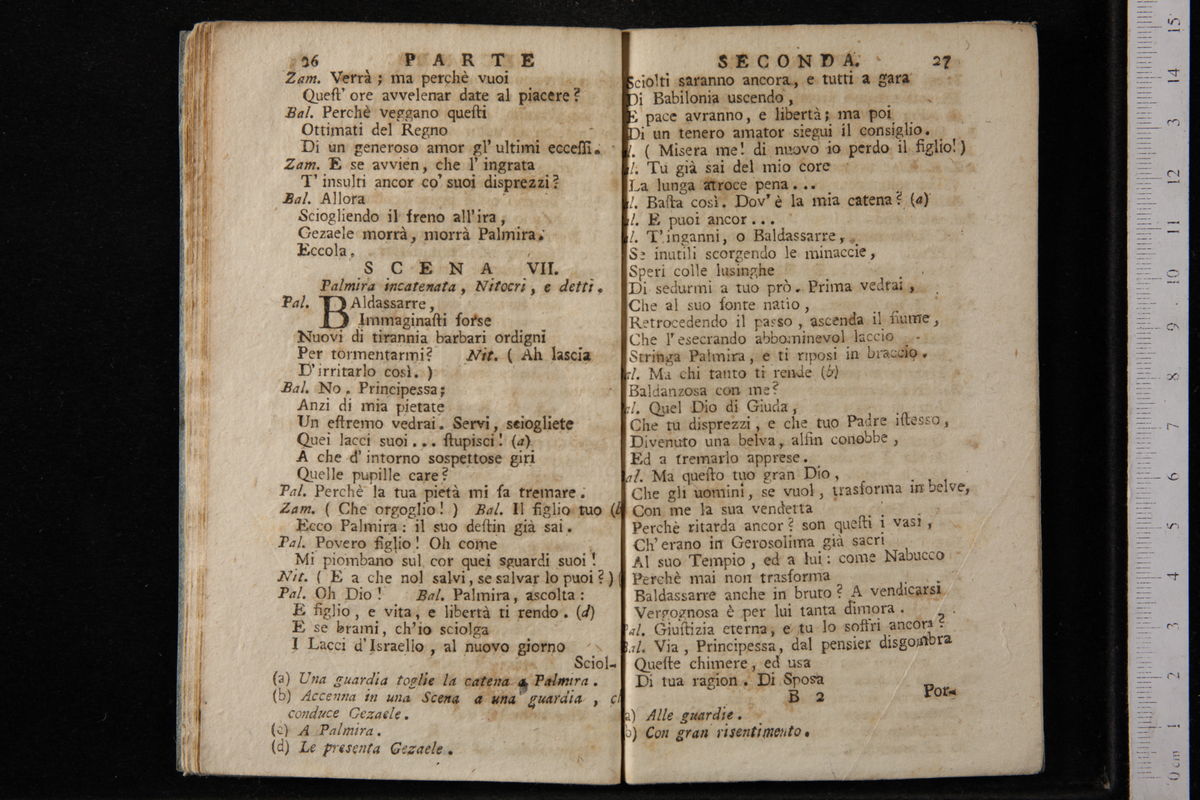 26 PARTE
Zam. Verrà ; ma perchè vuoi
Quest' ore avvelenar date al piacere ?
Bal. Perchè veggano questi
Ottimati del Regno
Di un generoso amor gl' ultimi eccessi.
Zam. E se avvien, che l' ingrata
T' insulti ancor co' suoi disprezzi ?
Bal. Allora
Sciogliendo il freno all'ira ,
Gezaele morrà , morrà Palmira.
Eccola.
SCENA VII.
Palmira incatenata , Nitocri , e detti .
Pal. BAldassarre,
Immaginasti forse
Nuovi di tirannia barbari ordigni
Per tormentarmi ? Nit. ( Ah lascia
D'irritarlo così. )
Bal. No . Principessa ;
Anzi di mia pietate
Un estremo vedrai . Servi , sciogliete
Quei lacci suoi ... stupisci ! (a)
A che d' intorno sospettose giri
Quelle pupille care ?
Pal. Perchè la tua pietà mi fa tremare .
Zam. ( Che orgoglio ! ) Bal. Il figlio tuo (b
Ecco Palmira : il suo destin già sai .
Pal. Povero figlio ! Oh come
Mi piombano sul cor quei sguardi suoi !
Nit. ( E a che nol salvi, se salvar lo puoi ? ) (
Pal. Oh Dio ! Bal. Palmira, ascolta :
E figlio , e vita , e libertà ti rendo . (d)
E se brami, ch'io sciolga
I Lacci d'Israello , al nuovo giorno
Sciol-
(a) Una guardia toglie la catena a Palmira .
(b) Accenna in una Scena a una guardia , c
conduce Gezaele .
(c) A Palmira .
(d) Le presenta Gezaele .
SECONDA. 27
Sciolti saranno ancora , e tutti a gara
Di Babilonia uscendo ,
E pace avranno, e libertà ; ma poi
Di un tenero amator siegui il consiglio .
l. ( Misera me! di nuovo io perdo il figlio! )
l. Tu già sai del mio core
La lunga atroce pena ...
al. Basta così. Dov' è la mia catena ? (a)
al. E puoi ancor ...
al. T' inganni, o Baldassarre ,
Se inutili scorgendo le minaccie ,
Speri colle lusinghe
Di sedurmi a tuo prò . Prima vedrai ,
Che al suo fonte natio ,
Retrocedendo il passo , ascenda il fiume ,
Che l'esecrando abbominevol laccio
Stringa Palmira , e ti riposi in braccio .
al. Ma chi tanto ti rende (b)
Baldanzosa con me ?
al. Quel Dio di Giuda ,
Che tu disprezzi , e che tuo Padre istesso ,
Divenuto una belva, alfin conobbe ,
Ed a tremarlo apprese .
al. Ma questo tuo gran Dio ,
Che gli uomini, se vuol , trasforma in belve,
Con me la sua vendetta
Perchè ritarda ancor ? son questi i vasi ,
Ch' erano in Gerosolima già sacri
Al suo Tempio , ed a lui : come Nabucco
Perchè mai non trasforma
Baldassarre anche in bruto ? A vendicarsi
Vergognosa è per lui tanta dimora .
Pal. Giustizia eterna, e tu lo soffri ancora ?
Bal. Via , Principessa, dal pensier disgombra
Queste chimere , ed usa
Di tua ragion . Di Sposa
B 2 Por-
a) Alle guardie .
b) Con gran risentimento .